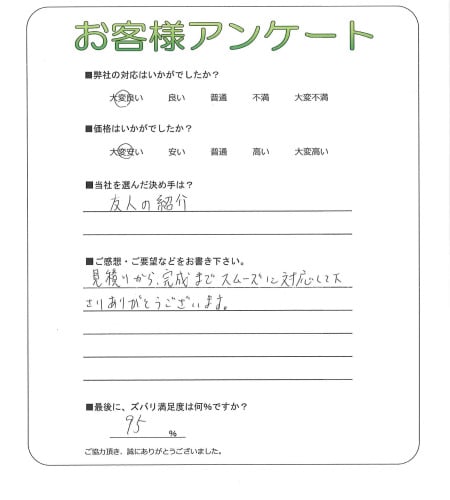 お客様アンケート
■弊社の対応はいかがでしたか？
大変良い 良い 普通 不満 大変不満
■価格はいかがでしたか？
大変安い 安い 普通 高い 大変高い
■当社を選んだ決め手は？
友人の紹介
■ご感想・ご要望などをお書き下さい。
見積りから、完成までスムーズに対応して下
さりありがとうございます。
■最後に、ズバリ満足度は何％ですか？
95 ％
ご協力頂き、誠にありがとうございました。